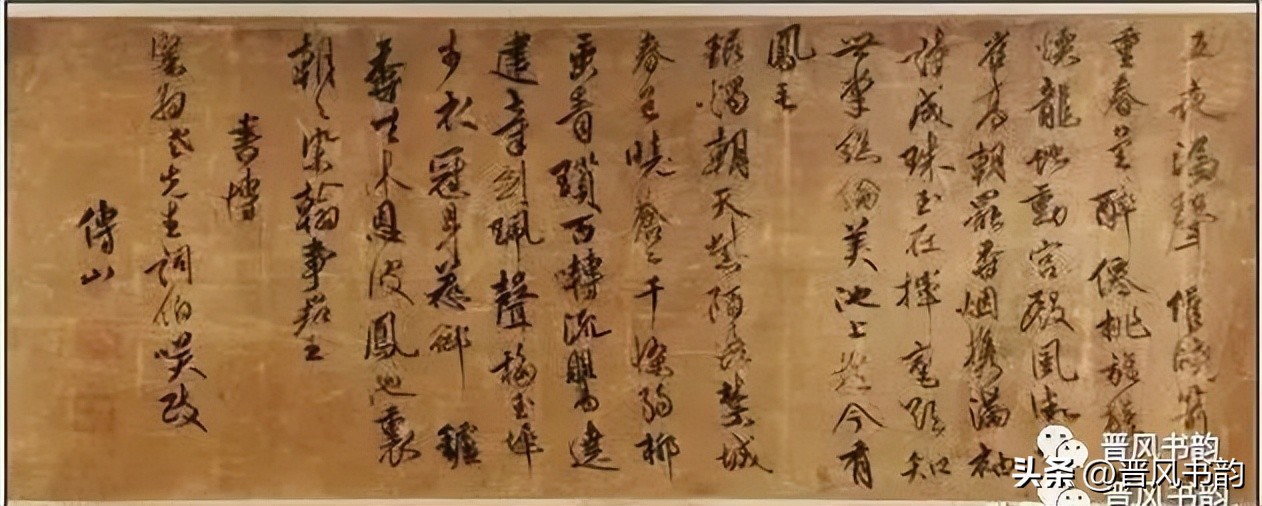 五夜漏聲催曉箭
重春色醉僊桃旌旂
煖龍虵動宮殿風微
雀高朝罷香烟携滿袖
詩成珠玉在揮毫欲知
世掌絲綸美池上於今有
鳳毛
銀燭朝天紫陌長禁城
春色曉蒼々千條弱柳
垂青瑣百囀流鶯遶
建章劍珮聲隨玉墀
步衣冠身惹御鑪
香共沐恩波鳳池裏
朝々染翰事君王
書博
老先生詞伯笑政
傅山
晋风书韵
头条 @晋风书韵
晋风书韵